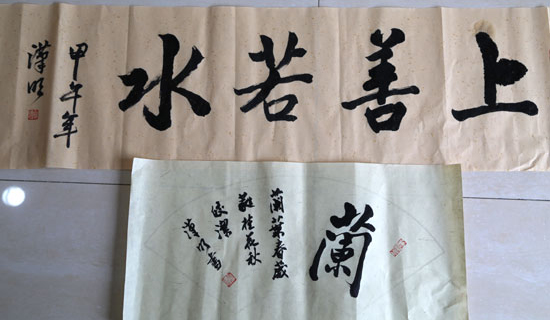 上善若水
甲午年
漢明
蘭
蘭葉春葳
蕤桂花秋
皎潔
漢明書